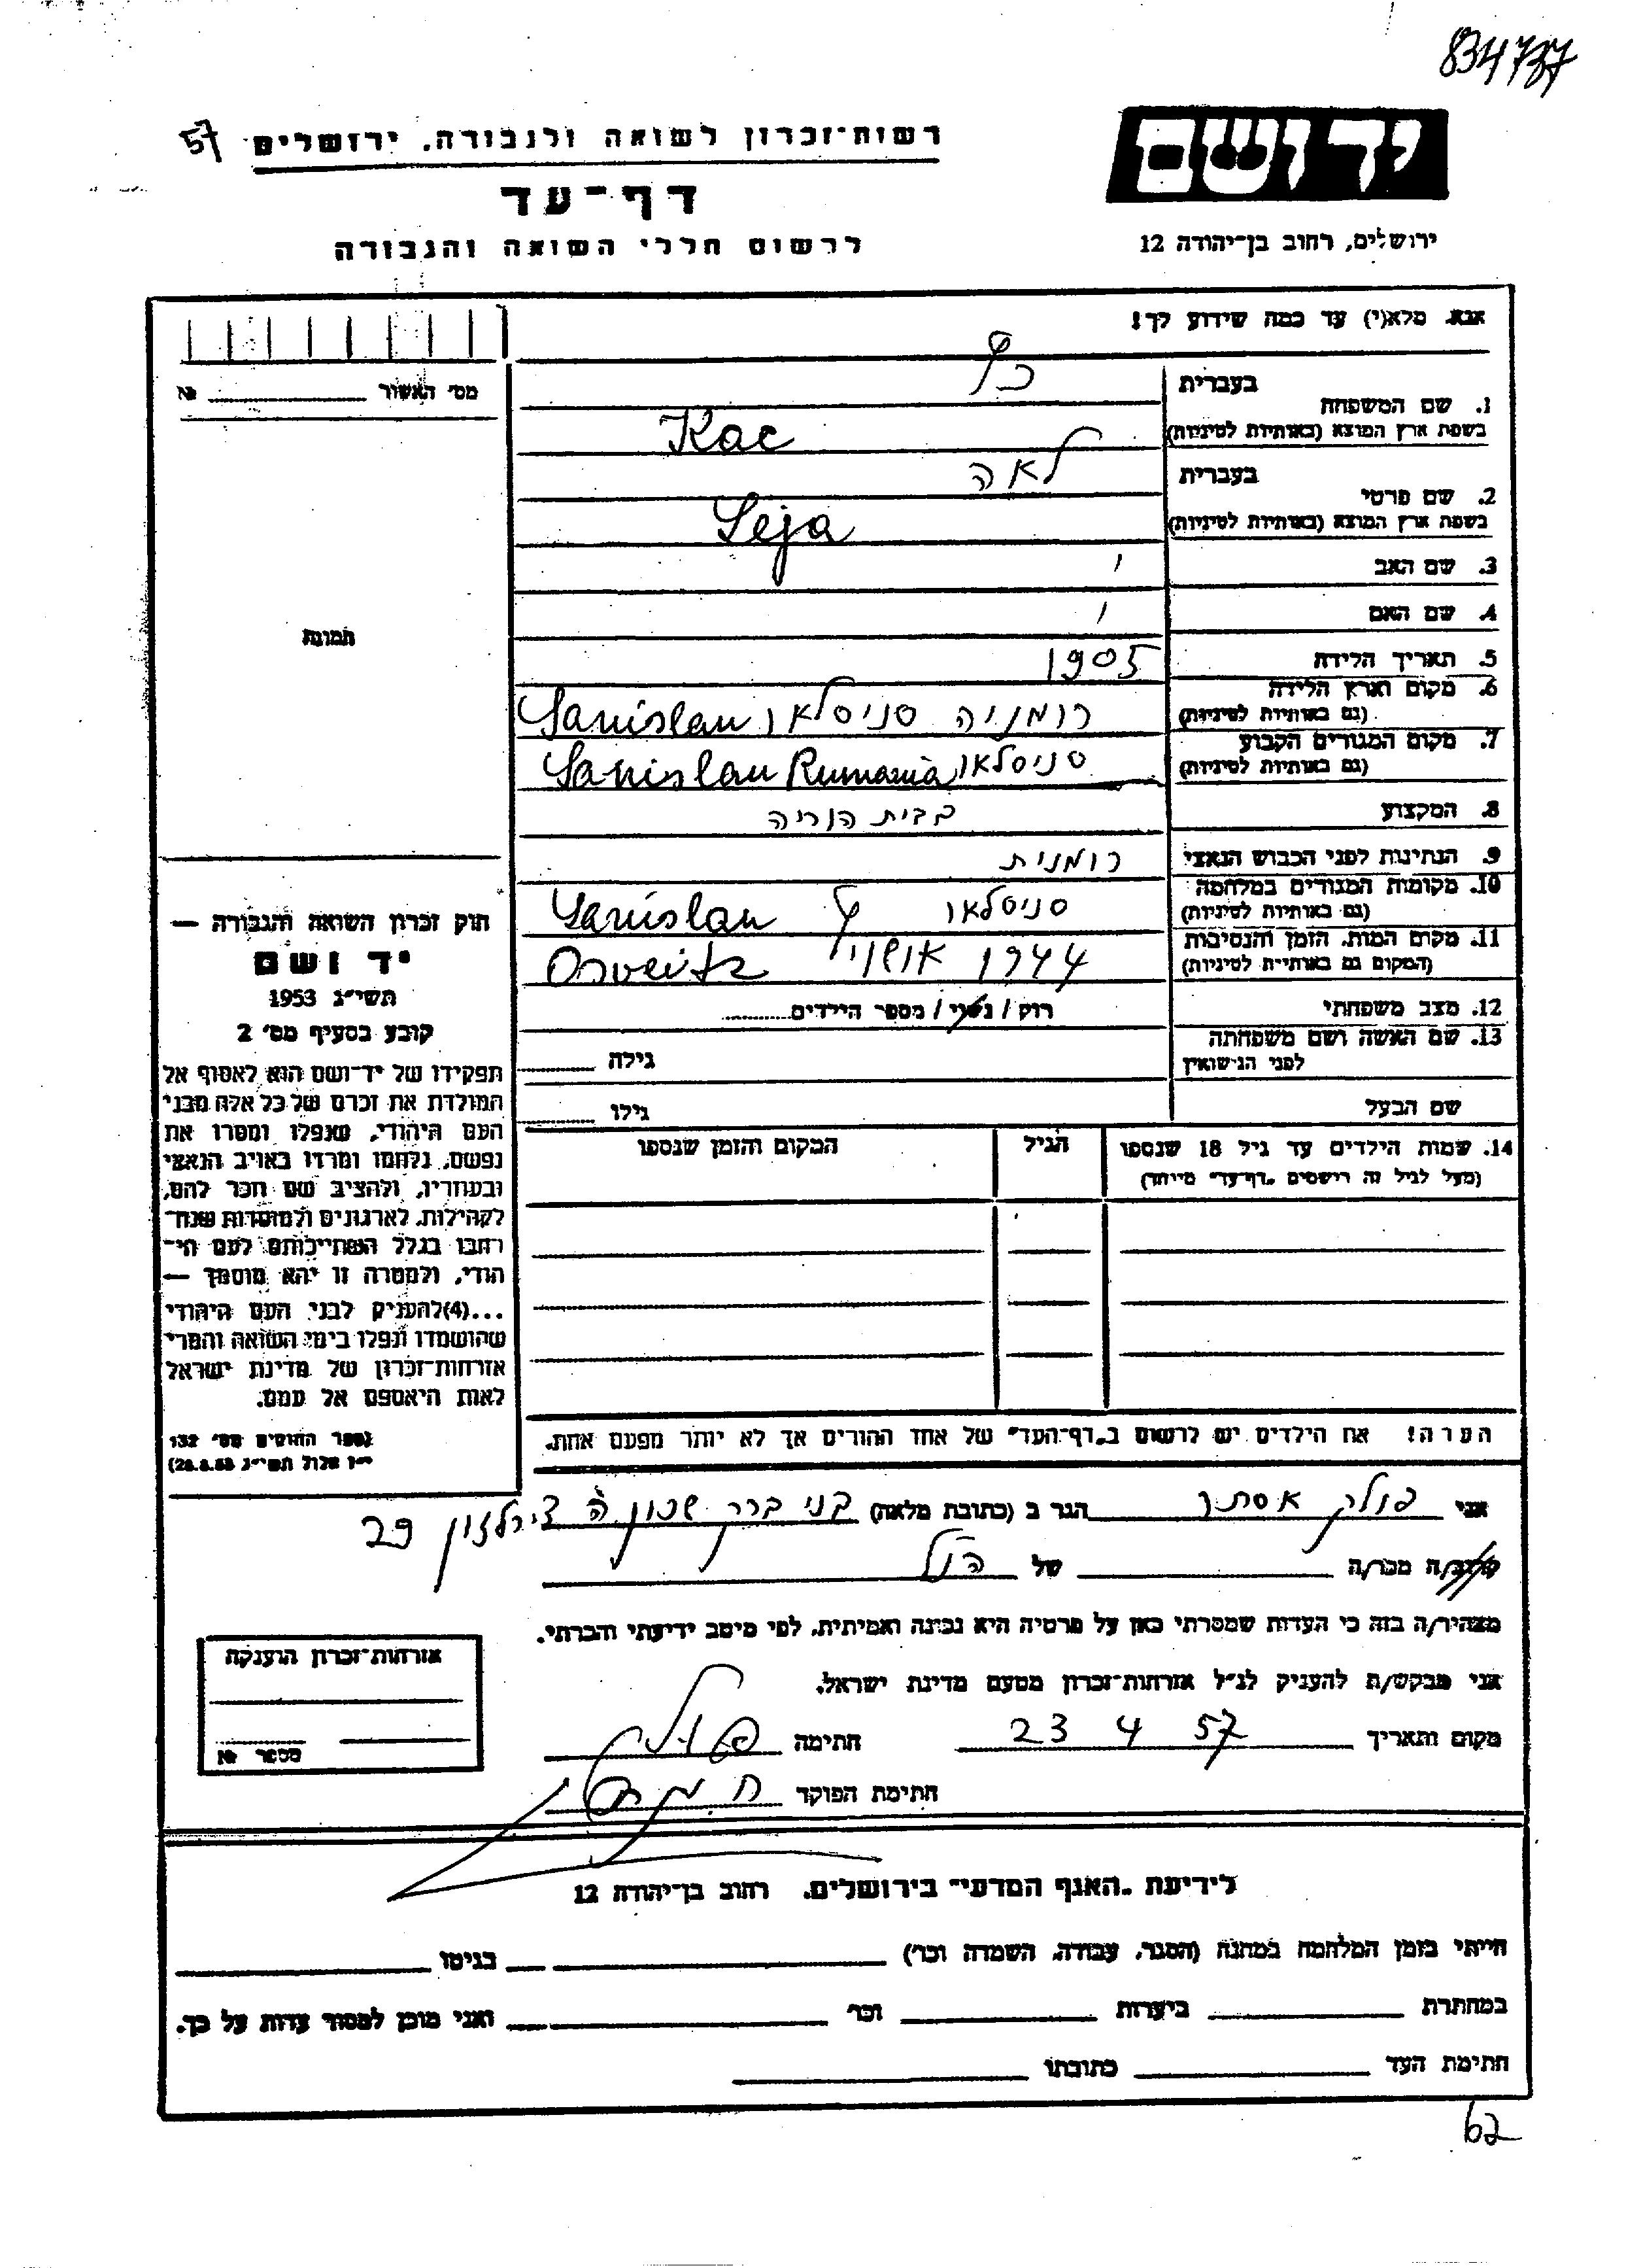 834737
רשות־זכרון לשואה ולגבורה. ירושלים 57
יד ושם
דף־עד
ירושלים, רחוב בן־יהודה 12
לרשום חללי השואה והגבורה
אנא. מלא(י) עד כמה שידוע לך!
מס׳ האשור № 
1. שם המשפחה
בעברית כץ
בשפת ארץ המוצא (באותיות לטיניות) Kac
2. שם פרטי
בעברית לאה
בשפת ארץ המוצא (באותיות לטיניות) Leja
3. שם האב
4. שם האם
5. תאריך הלידה 1905
6. מקום וארץ הלידה
(גם באותיות לטיניות) רומניה סניסלאו Sanislau
7. מקום המגורים הקבוע
(גם באותיות לטיניות) סניסלאו Sanislau Rumania
8. המקצוע
9. הנתינות לפני הכבוש הנאצי רומנית
10. מקומות המגורים במלחמה
(גם באותיות לטיניות) סניסלאו Sanislau
11. מקום המות. הזמן והנסיבות
(המקום גם באותיות לטיניות) 1944
12. מצב משפחתי רוק / נשוי / מספר הילדים
13. שם האשה ושם משפחתה
לפני הנישואין
גילה
שם הבעל גילו
14. שמות הילדים עד גיל 18 שנספו הגיל המקום והזמן שנספו
(מעל לגיל זה רושמים „דף־עד״ מיוחד)
הערה! את הילדים יש לרשום ב„דף־העד״ של אחד ההורים אך לא יותר מפעם אחת.
תמונה
חוק זכרון השואה והגבורה —
יד ושם
תשי״ג 1953
קובע בסעיף מס׳ 2
תפקידו של יד־ושם הוא לאסוף אל
המולדת את זכרם של כל אלה מבני
העם היהודי, שנפלו ומסרו את
נפשם, נלחמו ומרדו באויב הנאצי
ובעוזריו, ולהציב שם וזכר להם,
לקהילות, לארגונים ולמוסדות שנח־
רבו בגלל השתייכותם לעם הי־
הודי, ולמטרה זו יהא מוסמך —
...(4)להעניק לבני העם היהודי
שהושמדו ונפלו בימי השואה והמרי
אזרחות־זכרון של מדינת ישראל
לאות היאספם אל עמם.
(ספר החוקים מס׳ 132
י״ז אלול תשי״ג 28.8.53)
אני אסתר הגר ב (כתובת מלאה) בני ברק שכון ה 29
קרוב/ה מכר/ה של הנ״ל
מצהיר/ה בזה כי העדות שמסרתי כאן על פרטיה היא נכונה ואמיתית, לפי מיטב ידיעתי והכרתי.
אני מבקש/ת להעניק לנ״ל אזרחות־זכרון מטעם מדינת ישראל.
מקום ותאריך 23 4 57 חתימה
חתימת הפוקד
אזרחות־זכרון הוענקה
מספר №
לידיעת „האגף המדעי״ בירושלים, רחוב בן־יהודה 12
הייתי בזמן המלחמה במחנה (הסגר, עבודה, השמדה וכו׳) בגיטו
במחתרת ביערות וכו׳ ואני מוכן למסור עדות על כך.
חתימת העד כתובתו
62